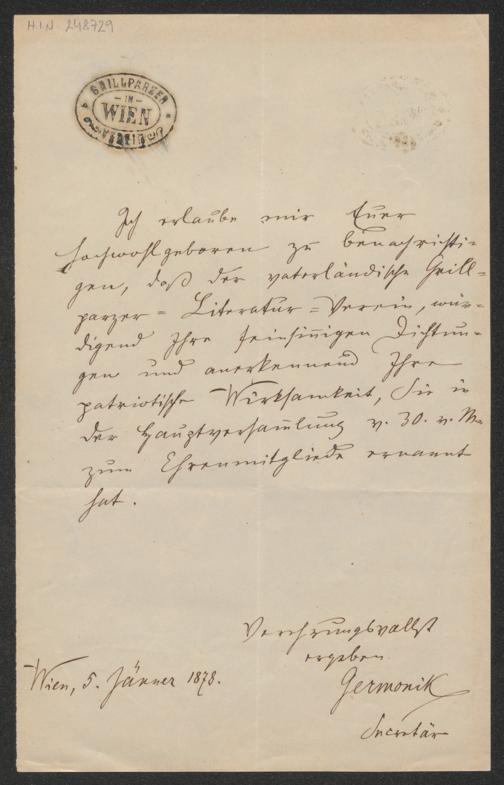 H.I.N. 248729
GRILLPARZER
IN
WIEN
Ich erlaube mir Euer
Hochwohlgeboren zu benachrichti-
gen, daß der vaterländische Grill-
parzer-Literatur-Verein, wür-
digend Ihre feinsinnigen Dichtun-
gen und anerkennend Ihre
patriotische Wirksamkeit, Sie in
der Hauptversam̅lung v. 30. v. M.
zum Ehrenmitgliede ernannt
hat.
Verehrungsvollst
ergeben
Germonik
Secretär
Wien, 5. Jänner 1878.